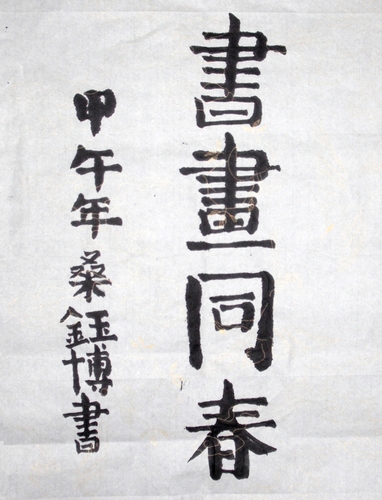 書畫同春
甲午年桑鈺博書